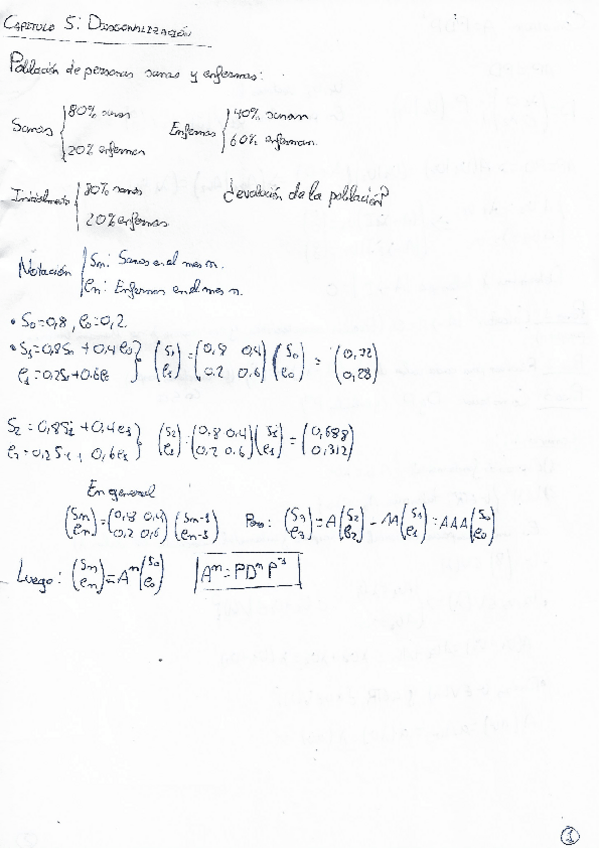 CAPITULO 5: DIAGONALIZACIÓN
Población de personas sanas y enfermas:
Sanas { 80% sanas
20% enferman
Enfermas { 40% sanan
60% enferman.
Inicialmente { 80% sanas
20% enfermas
¿evolución de la población?
Notación { Sn: Sanos en el mes n.
en: Enfermos en el mes n.
• S0=0,8, e0=0,2.
• S1=0,8S0 + 0,4e0
e1=0,2S0+0,6e0 } (S1 e1) = (0,8 0,4 0,2 0,6) (S0 e0) = (0,72 0,28)
S2=0,8S1+0,4e1
e2=0,2S1+0,6e1 } (S2 e2) = (0,8 0,4 0,2 0,6) (S1 e1) = (0,688 0,312)
En general
(Sn en) = (0,8 0,4 0,2 0,6) (Sn-1 en-1) Pero: (S3 e3) = A (S2 e2) = AA (S1 e1) = AAA (S0 e0)
Luego: (Sn en) = A^n (S0 e0) A^n = PD^nP^-1
1